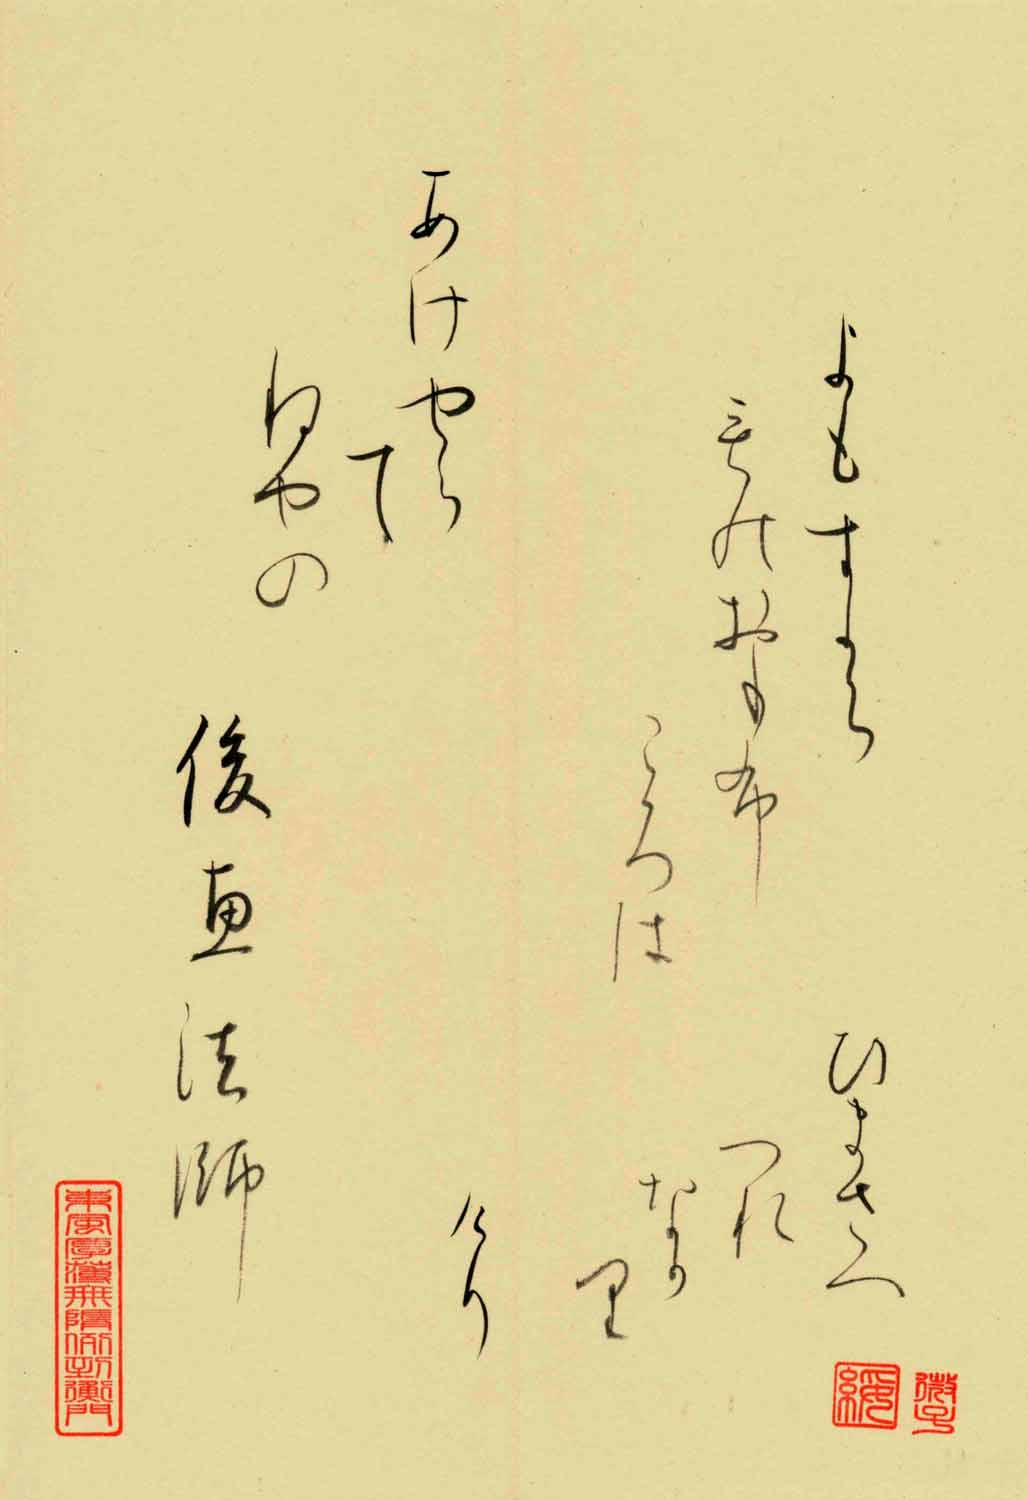 よもすから
ものおも布
ころは
あけやら
て
ねやの
ひまさへ
つれ
なか
里
けり
俊恵法師